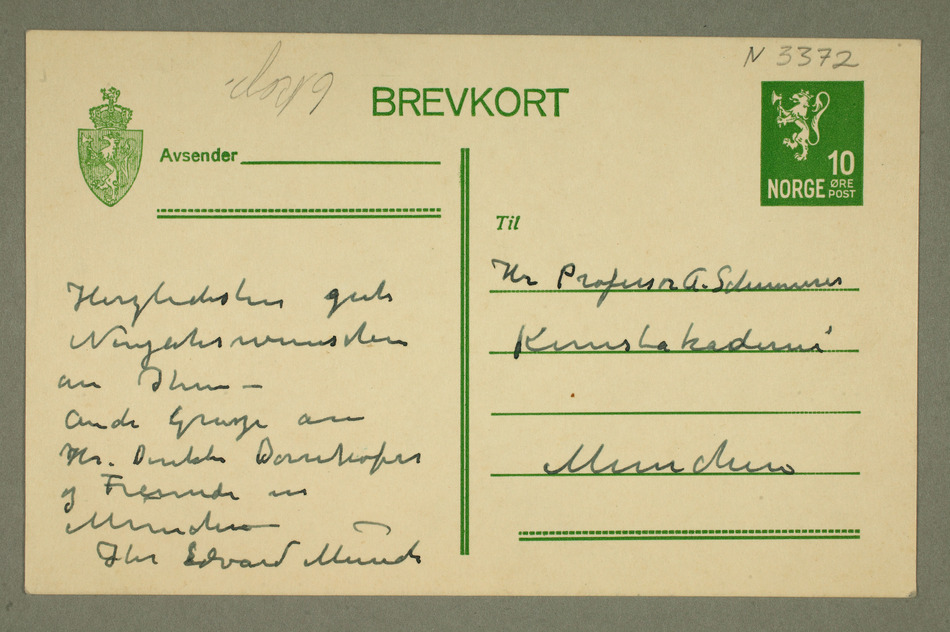 N 3372
BREVKORT
Avsender
10
NORGE ØRE POST
Til
Hr Professor A. Schinnerer
Kunstakademi
München
Herzlichsten gute
Neujahrswünschen
an Ihnen –
und Grüsse an
Hr. Direktor Dornhöfer
og Freunde in
München
Ihr Edvard Munch